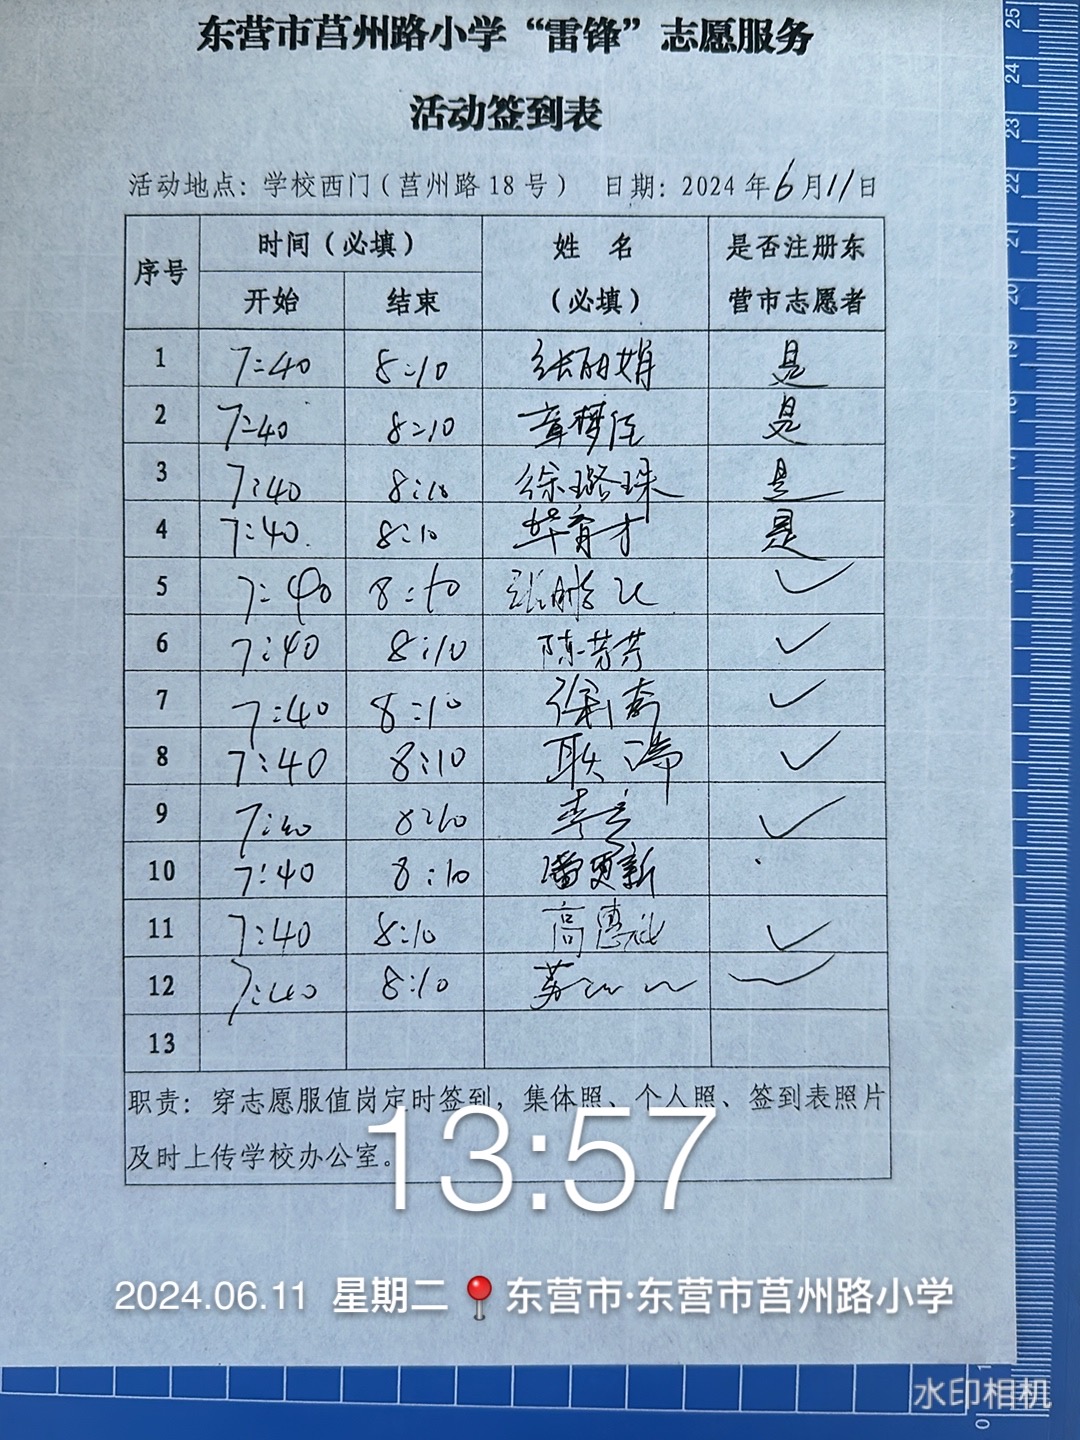 东营市莒州路小学“雷锋”志愿服务
活动签到表
活动地点：学校西门（莒州路18号） 日期：2024年6月11日
序号 时间（必填） 姓 名 是否注册东
开始 结束 （必填） 营市志愿者
1 7:40 8:10 张丽娟 是
2 7:40 8:10 章梦佳 是
3 7:40 8:10 徐璐珠 是
4 7:40 8:10 毕育才 是
5 7:40 8:10 张鹏飞 ✓
6 7:40 8:10 陈芳芳 ✓
7 7:40 8:10 ✓
8 7:40 8:10 ✓
9 7:40 8:10 ✓
10 7:40 8:10 潘更新
11 7:40 8:10 高 ✓
12 7:40 8:10 苏 ✓
13
职责：穿志愿服值岗定时签到，集体照、个人照、签到表照片
及时上传学校办公室。
13:57
2024.06.11 星期二 东营市·东营市莒州路小学
水印相机
25
24
23
22
21
20
19
0